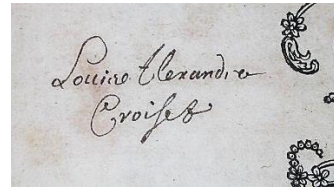 Louise Alexandre
Croiset